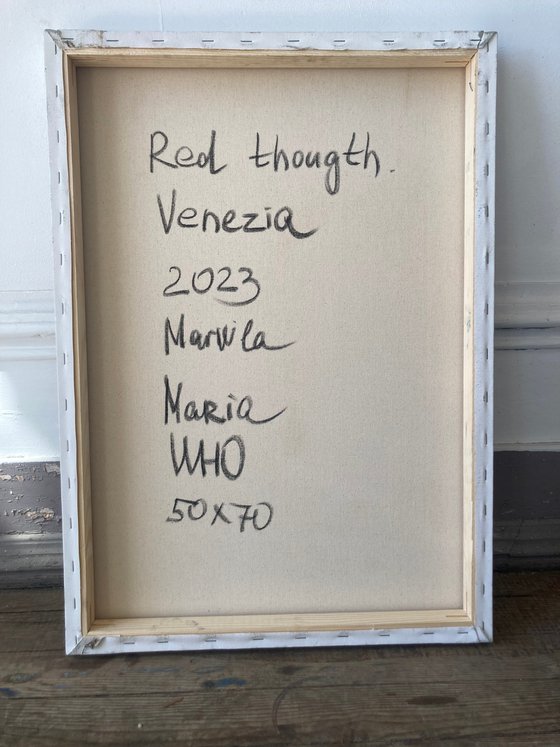 Red thougth.
Venezia
2023
Marwila
Maria
WHO
50x70